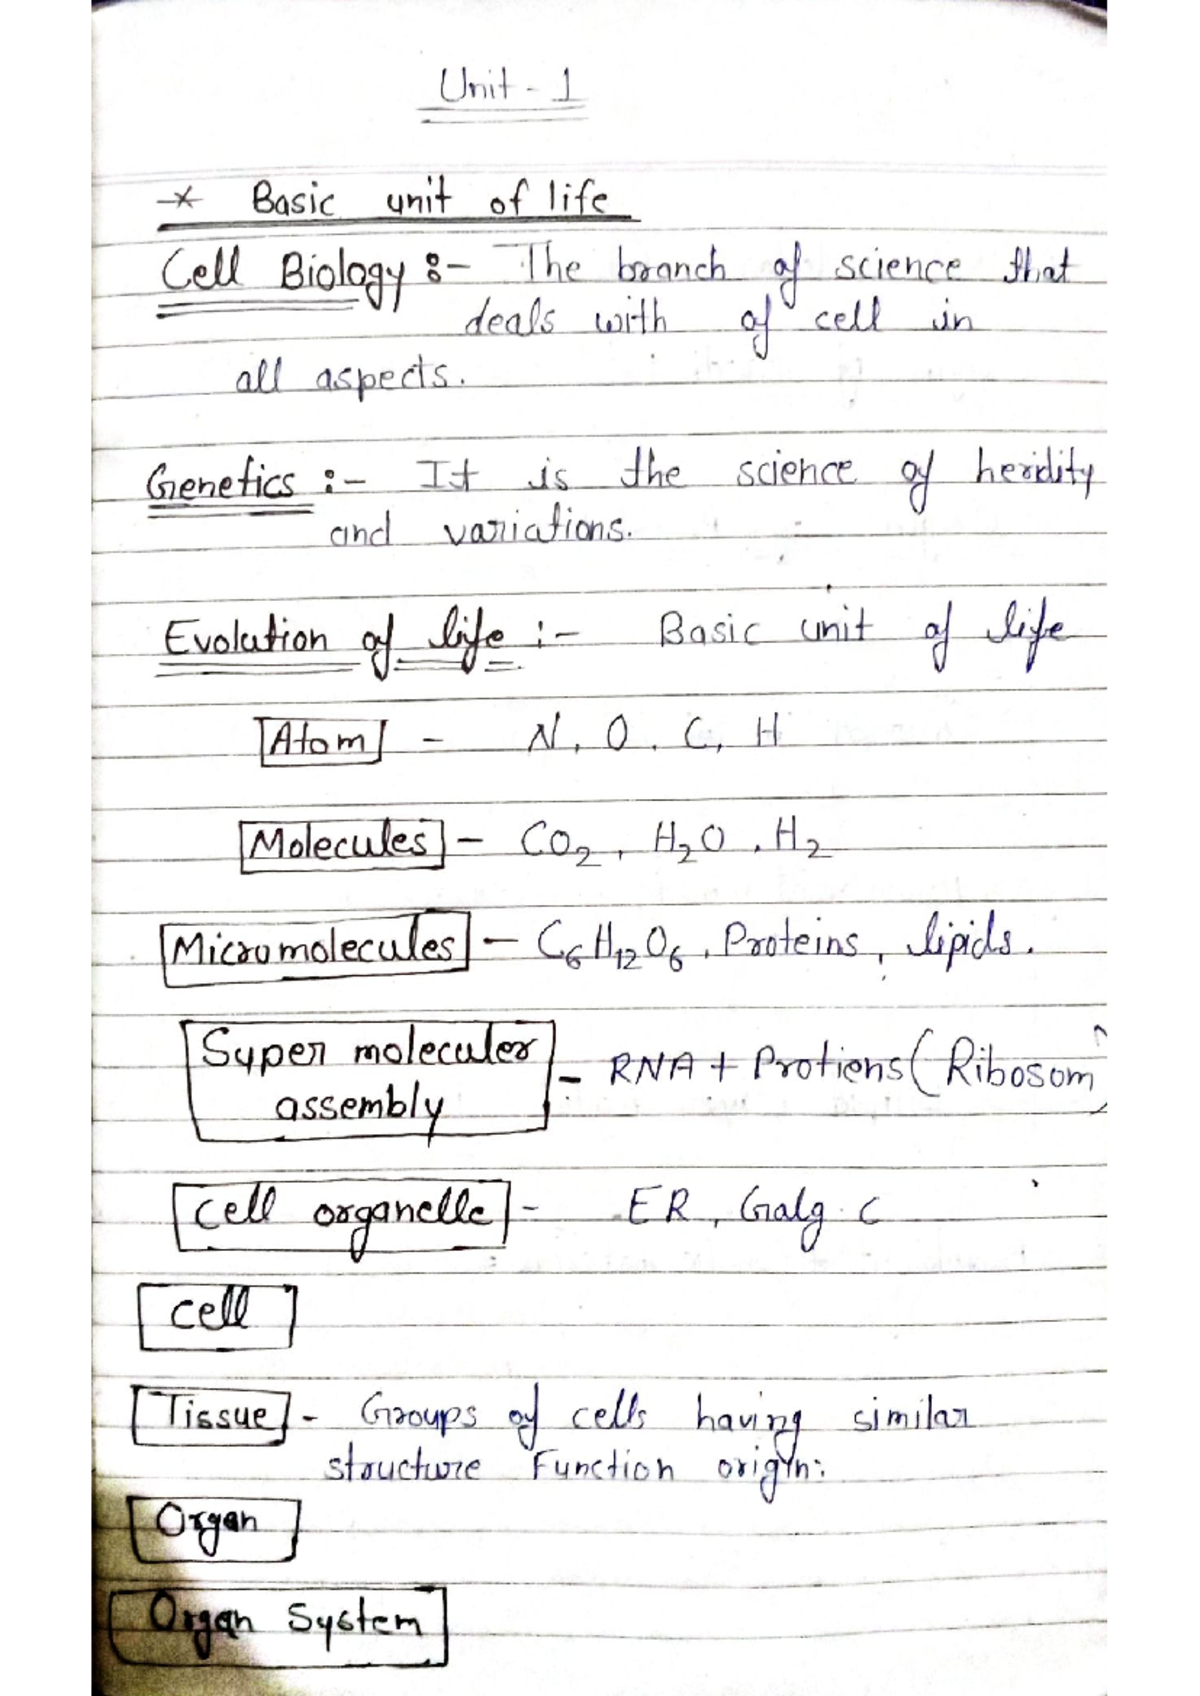 Unit - 1
* Basic unit of life
Cell Biology :- The branch of science that
deals with of cell in
all aspects.
Genetics :- It is the science of heridity
and variations.
Evolution of life :- Basic unit of life
Atom - N, O, C, H
Molecules - CO2, H2O, H2
Micromolecules - C6H12O6, Proteins, lipids.
Super moleculer
assembly - RNA + Protiens (Ribosom)
Cell organelle - ER, Galg. C
Cell
Tissue - Groups of cells having similar
structure Function origin:
Organ
Organ System